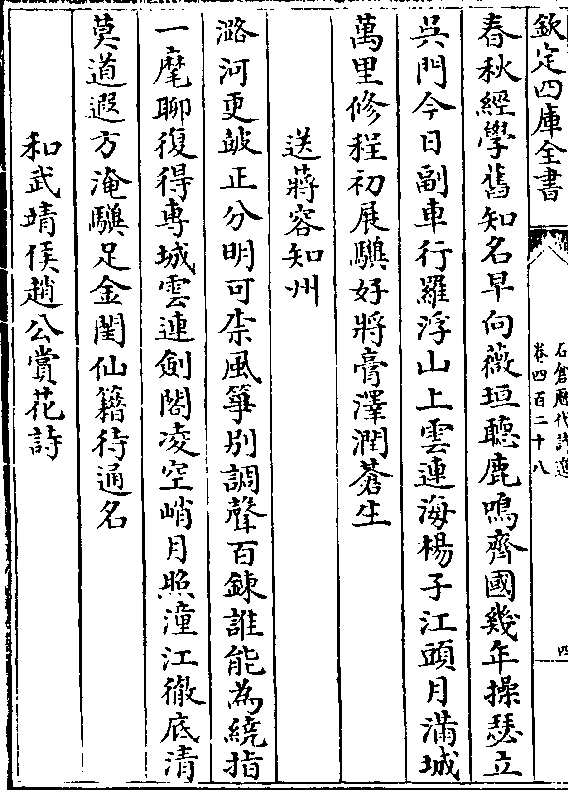 欽定四庫全書
石倉歷代詩選
卷四百二十八
四
春秋經學舊知名早向薇垣聽鹿鳴齊國幾年操瑟立
吳門今日副車行羅浮山上雲連海楊子江頭月滿城
萬里修程初展驥好將膏澤潤蒼生
送蔣容知州
潞河更皷正分明可柰風箏别調聲百鍊誰能為繞指
一麾聊復得專城雲連劍閣凌空峭月照潼江徹底清
莫道遐方淹驥足金閨仙籍待通名
和武靖侯趙公賞花詩